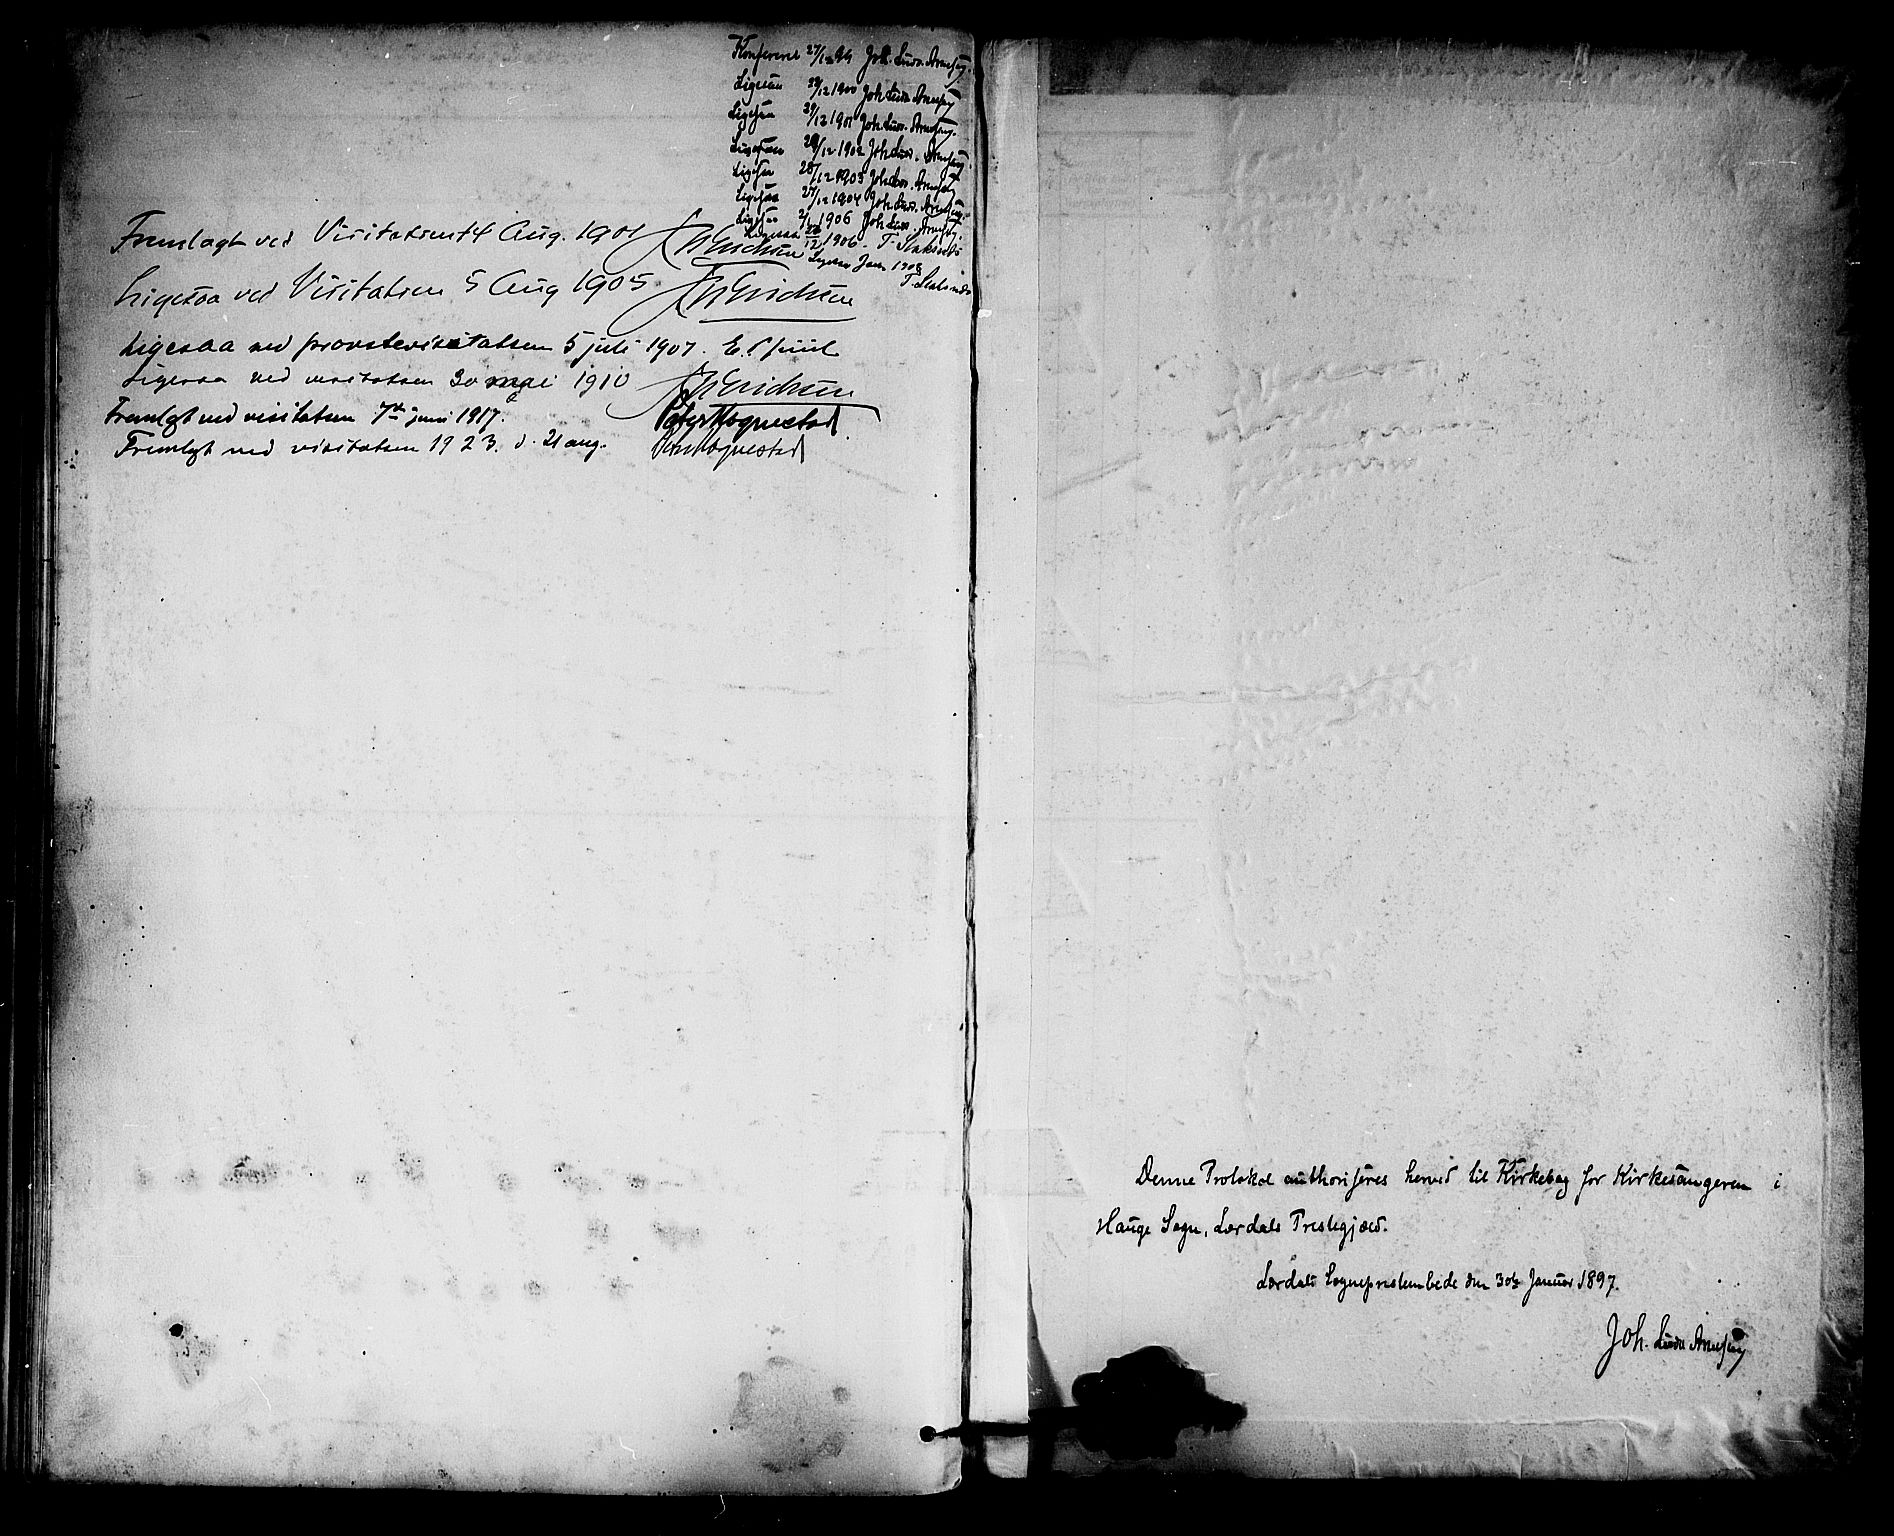 Konfereret 27/12 99 Joh. Ludv. Arnesen
Ligesaa 29/12 1900 Joh Ludv Arnesen
Ligesaa 29/12 1901 Joh Ludv. Arnesen.
Ligesaa 29/12 1902 Joh Ludv. Arnesen
Ligesaa 28/12 1903 Joh Ludv. Arnesen
Ligesaa 27/12 1904 Joh Ludv. Arnesen
Ligesaa 2/1 1906 Joh Ludv. Arnesen
Ligesaa 1906. T.
Ligesaa Jan 1908
T.
Fremlagt ved Visitatsen 14 Aug. 1901
Ligesaa ved Visitatsen 5 Aug 1905
Ligesaa ved provstevisitatsen 5 juli 1907. E. Juul
Ligesaa ved visitatsen 30 mai 1910
Fremlagt ved visitatsen 7de juni 1917. Peter Hognestad
Fremlagt ved visitatsen 1923. d. 21 aug. Peter Hognestad
Denne Protokol authoriseres herved til Kirkebog for Kirkesangeren i
Hauge Sogn, Lærdals Prestegjæld.
Lærdals Sogneprestembede den 30te Januar 1897.
Joh. Ludv Arnesen